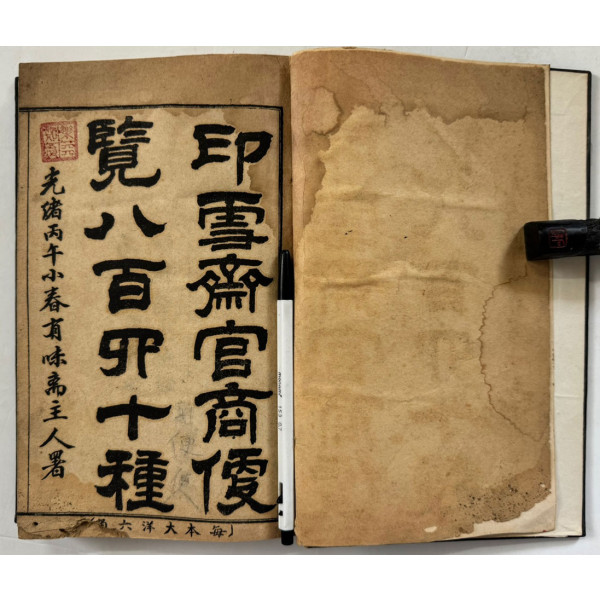 印雪齋官商便
覽八百四十種
光緒丙午小春有味齋主人署
每本大洋六